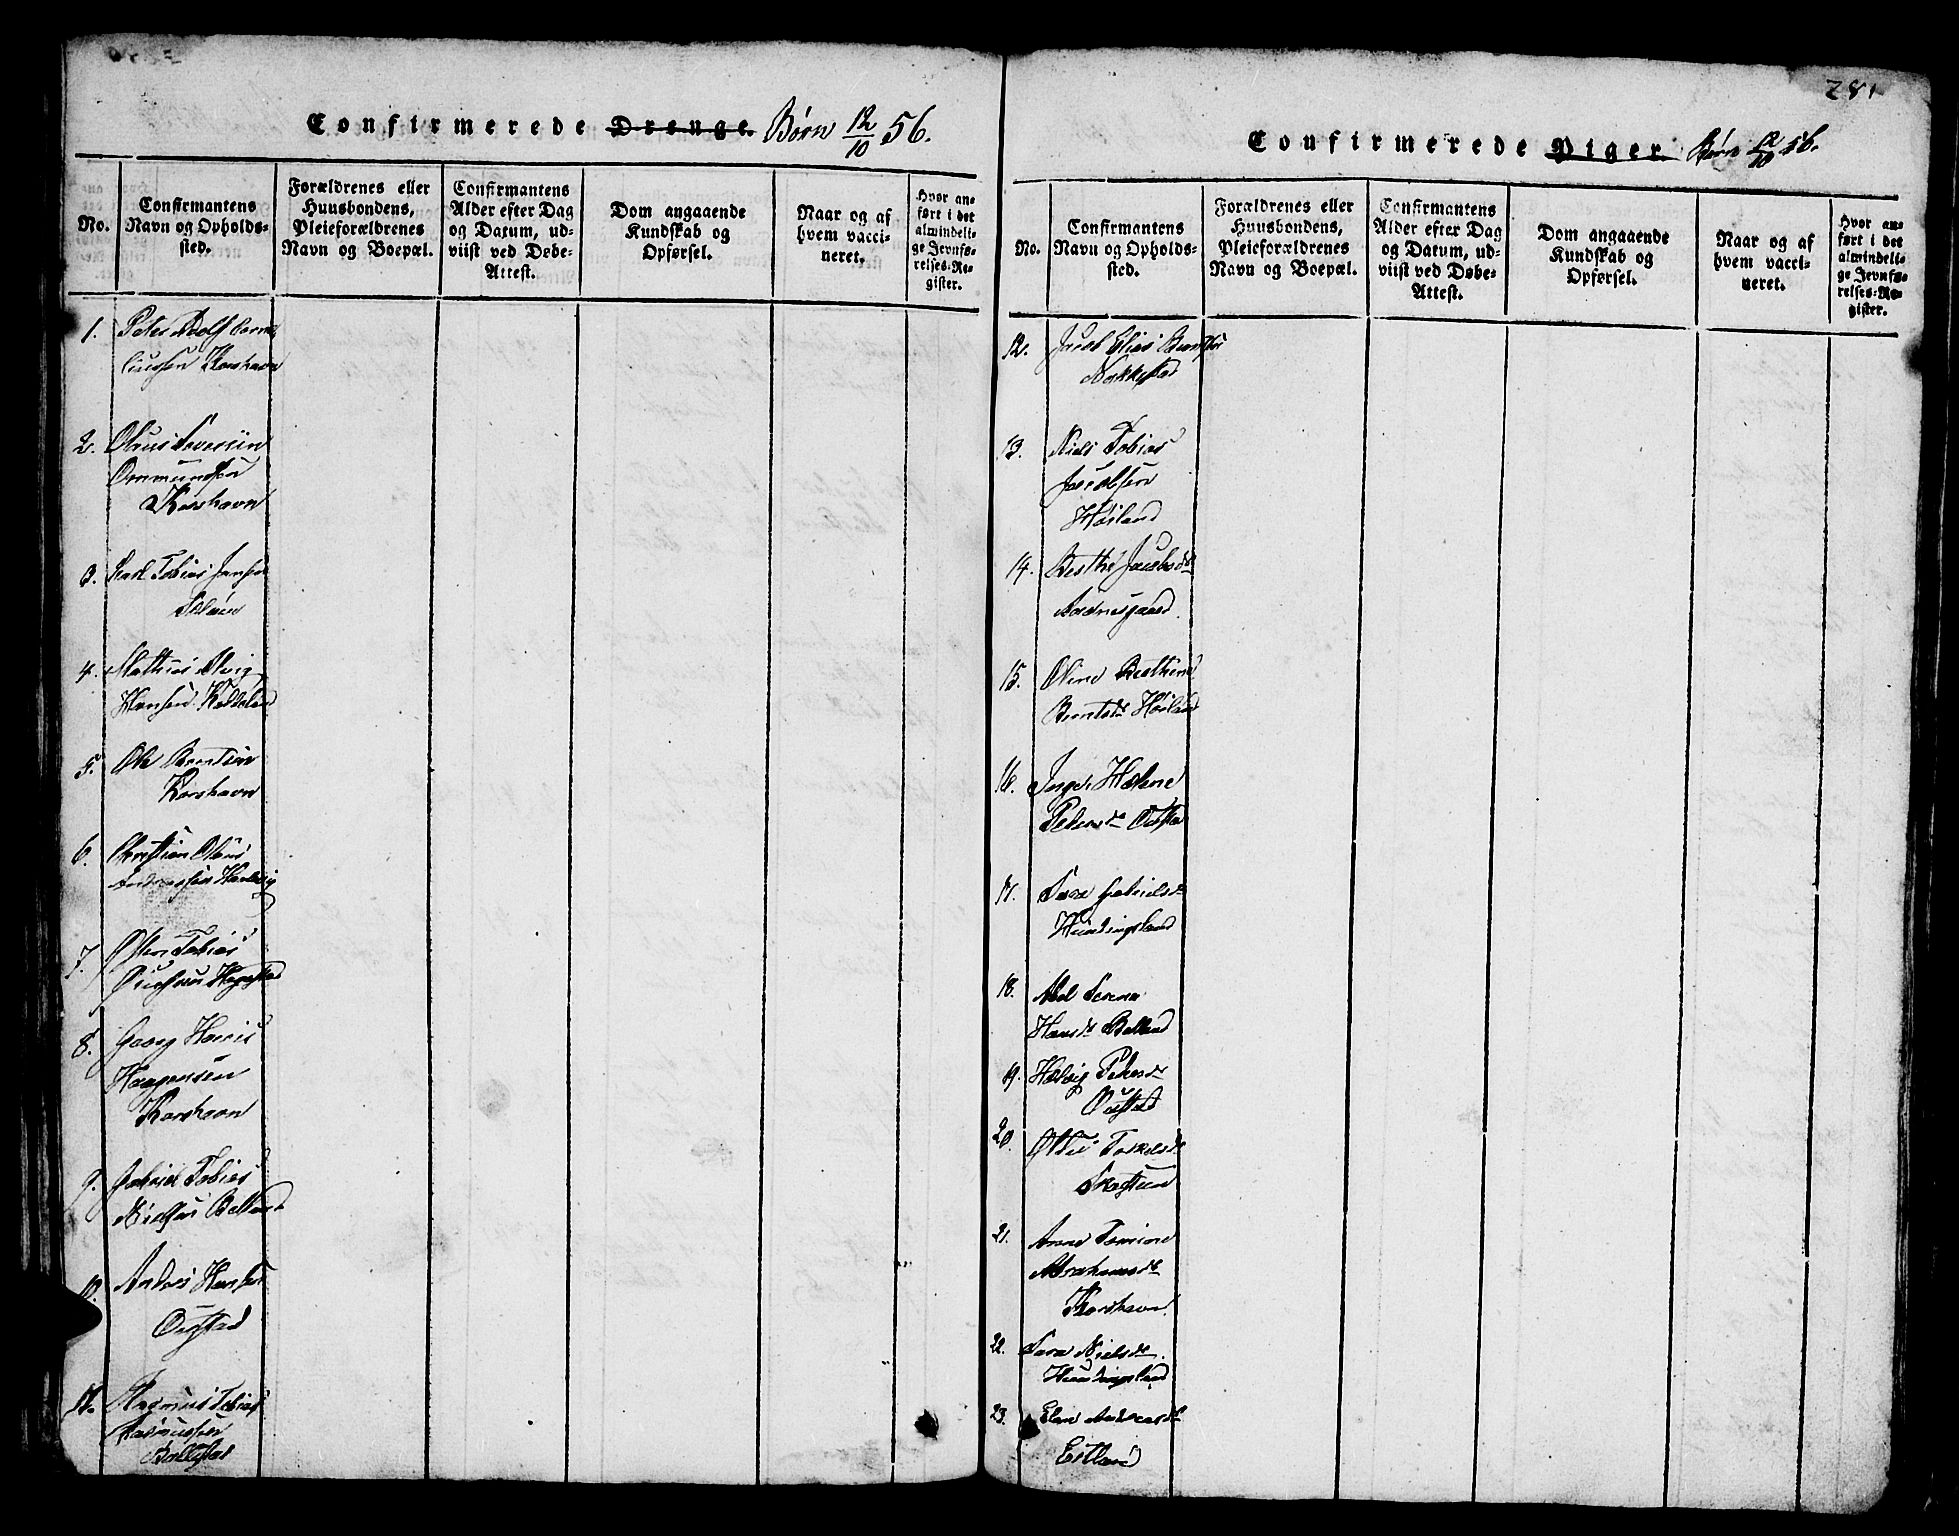 Confirmerede Drenge. Børn 12/10 56.
No.
Confirmantens
Navn og Opholds-
sted.
Forældrenes eller
Huusbondens,
Pleieforældrenes
Navn og Boepæl.
Confirmantens
Alder efter Dag
og Datum, ud-
viist ved Døbe-
Attest.
Dom angaaende
Kundskab og
Opførsel.
Naar og af
hvem vacci-
neret.
Hvor an-
ført i det
almindeli-
ge Jevnfø-
relses-Re-
gister.
1. Peter Adolf Corne
liussen Korshavn
2. Olaus Severiin
Ommundsen
Korshavn
3. Karl Tobias Jansen
4. Mathias Alvig
Hansen
5. Ole Berntsen
Korshavn
6. Christian Olaus
Andreassen
7. Osten Tobias
8. Georg Harris
Haagensen
Korshavn
9. Gabriel Tobias
Nielsen Belland
10. Andreas Hansen
Ougstad
11. Rasmus Tobias
Rasmussen
281
Confirmerede Piger. Børn 12/10 56.
No.
Confirmantens
Navn og Opholds-
sted.
Forældrenes eller
Huusbondens,
Pleieforældrenes
Navn og Boepæl.
Confirmantens
Alder efter Dag
og Datum, ud-
viist ved Døbe-
Attest.
Dom angaaende
Kundskab og
Opførsel.
Naar og af
hvem vacci-
neret.
Hvor an-
ført i det
almindeli-
ge Jevnfø-
relses-Re-
gister.
12. Jacob Elias Berntsen
Nakkestad
13. Niels Tobias
Jacobsen
Høiland
14. Berthe Jacobsdr
15. Oline Berthine
Berntsdr Høiland
16. Inger Helene
Pedersdr
17. Sara Gabrielsdr
Hundingsland
18. Abel Serena
Hansdr Belland
19. Helvig Pedersdr
Ougstad
20. Torkelsdr
21. Anne Tomine
Abrahamsdr
Korshavn
22. Sara Nielsdr
Hundingsland
23. Elen Andreasdr
Estland